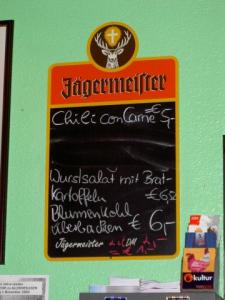 Jägermeister
Chili con Carne € 5,-
Wurstsalat mit Brat-
Kartoffeln € 6,50
Blumenkohl
überbacken € 6,-
Jägermeister
kultur